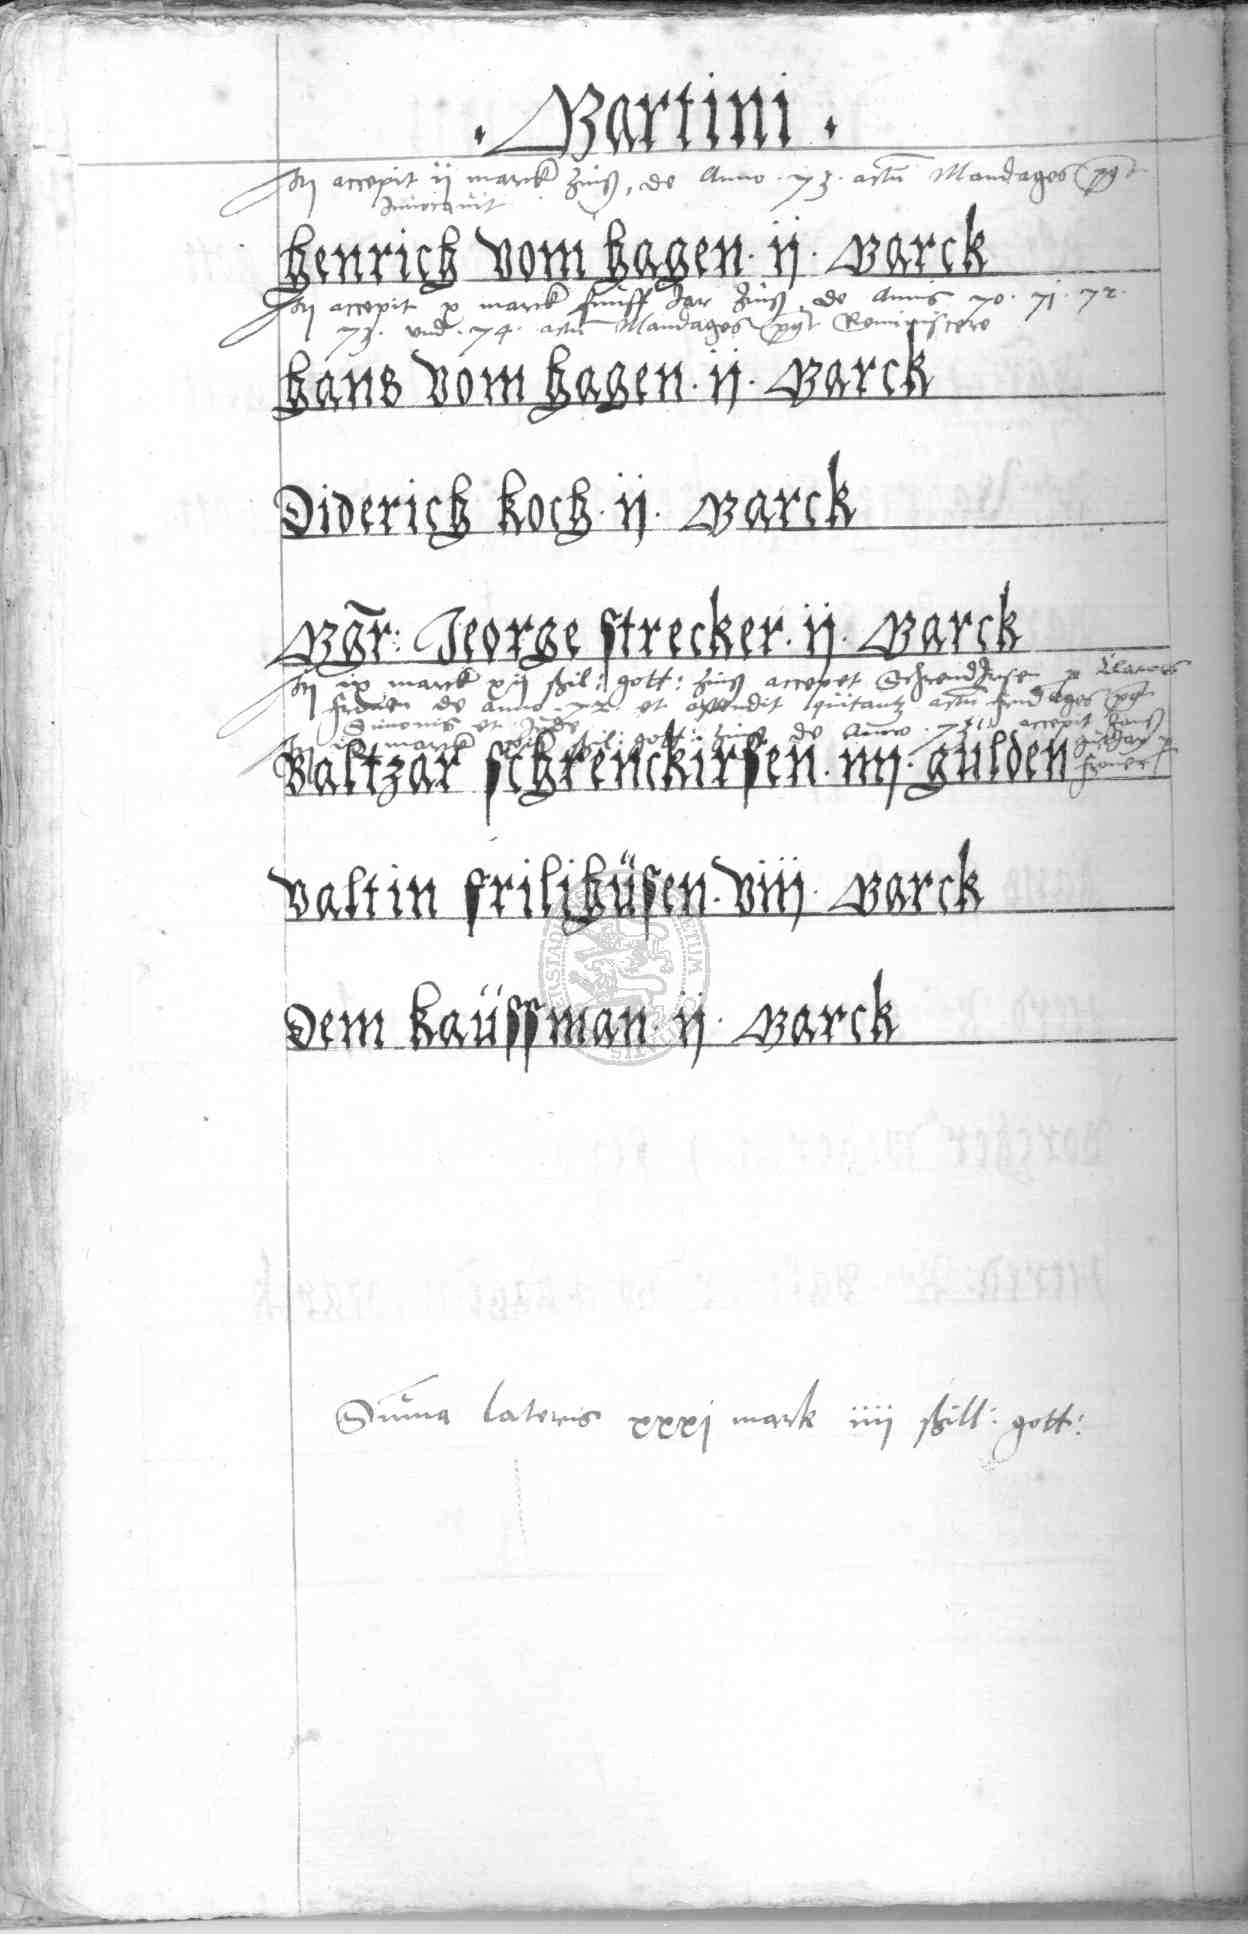 . Martini .
accepit ij marck Zinß, de Anno . 73 . actũ Mandages pꝰt
Inuocauit
Henrich vom Hagen . ij . Marck
accepit x marck funff Jar Zinß, de Annis 70 . 71 . 72 .
73 . vnd . 74 . actũ Mandages pꝰt Reminiscere
Hans vom Hagen . ij . Marck
Diderich Koch . ij . Marck
Mgr̃: Jeorge Strecker . ij . Marck
ix marck xij ßil: gott: Zinß accepit Schrenckirsen p Clawes
de Anno . 72 et ostendit quitantz actũ pꝰt
Simonis et Jude
ix marck ßil: gott: Zinß de Anno . 73 accepit Hans
Baltzar Schrenckirsen . iiij . gulden
Valtin Frilihüsen . viij . Marck
Dem Kaüffman . ij . Marck
Sum̃a lateris xxxj mark iiij ßill: gott: